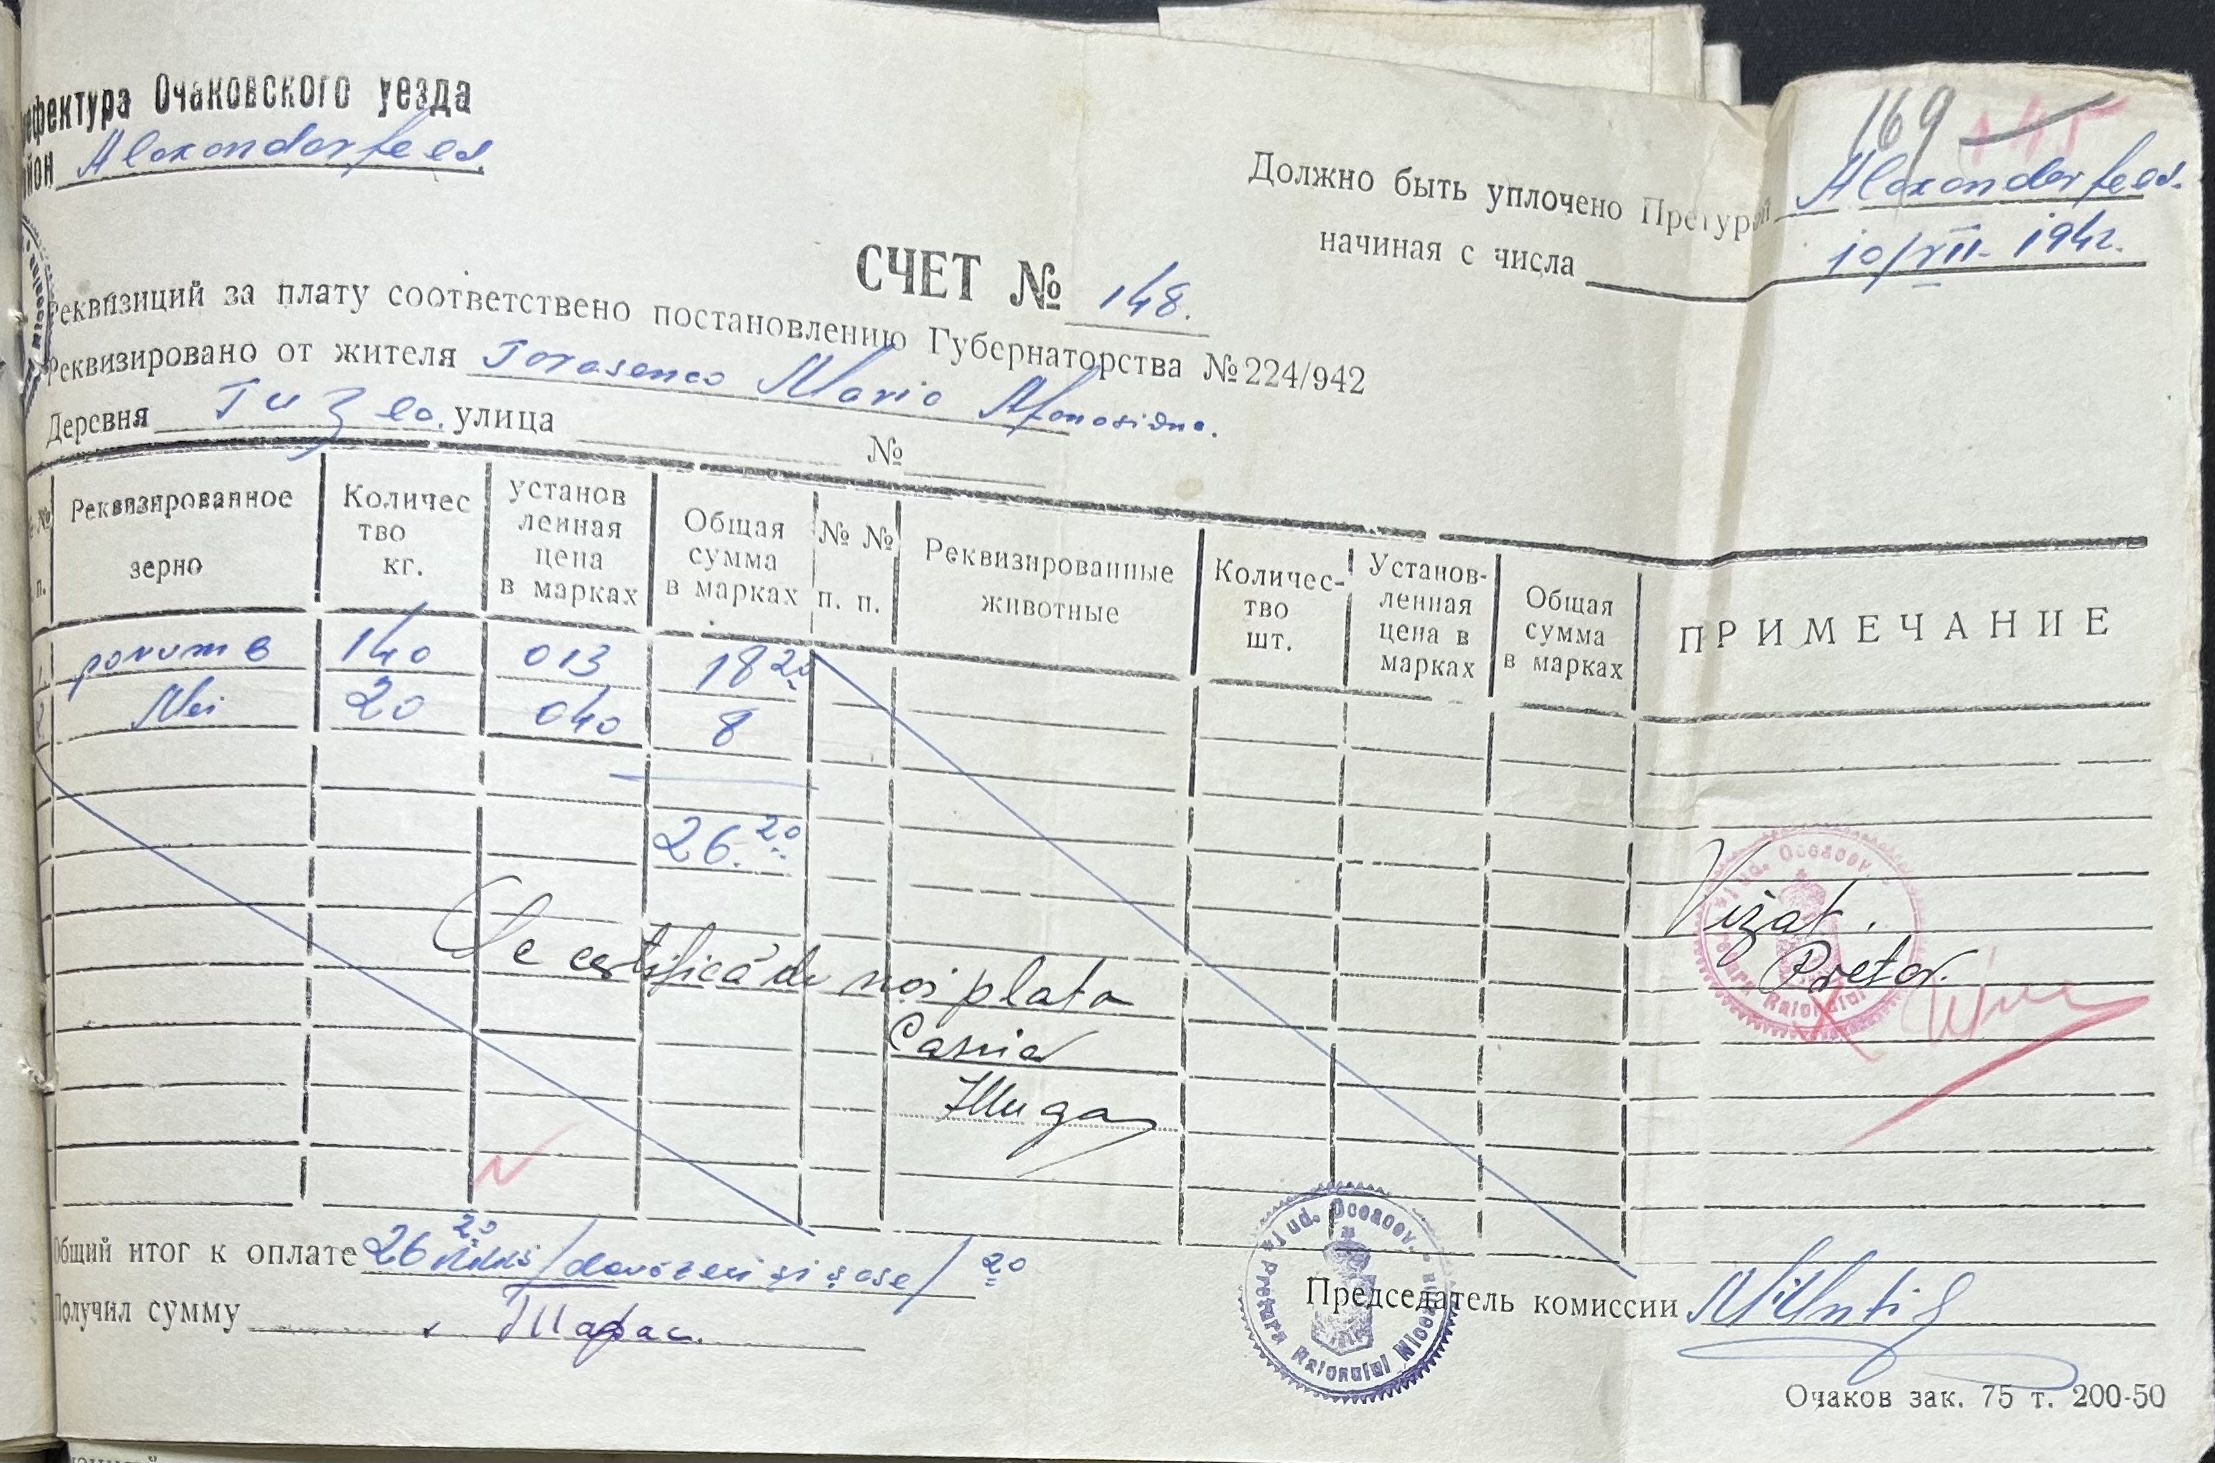 ефектура Очаковского уезда
йон Alexandarfeld
169 145
Должно быть уплочено Претурой Alexandarfeld.
начиная с числа 10/VII - 1942.
СЧЕТ № 148.
Реквизиций за плату соответствено постановлению Губернаторства №224/942
Реквизировано от жителя Tarasenco Maria Afanasievna.
Деревня улица №
№ п. Реквизированное зерно Количество кг. установленная цена в марках Общая сумма в марках №№ п. п. Реквизированные животные Количес-тво шт. Установ-ленная цена в марках Общая сумма в марках ПРИМЕЧАНИЕ
1. porumb 140 013 18 20
2 Mei 20 040 8
26.20
Se certifică de noi plata
Casier
Vizat.
Pretor.
Jud. Oceacov.
Pretura Raionului
Общий итог к оплате 26 20 /douăzeci și șase/ 20
Получил сумму Тарас.
Jud. Oceacov. Pretura Raionului
Председатель комиссии
Очаков зак. 75 т. 200-50